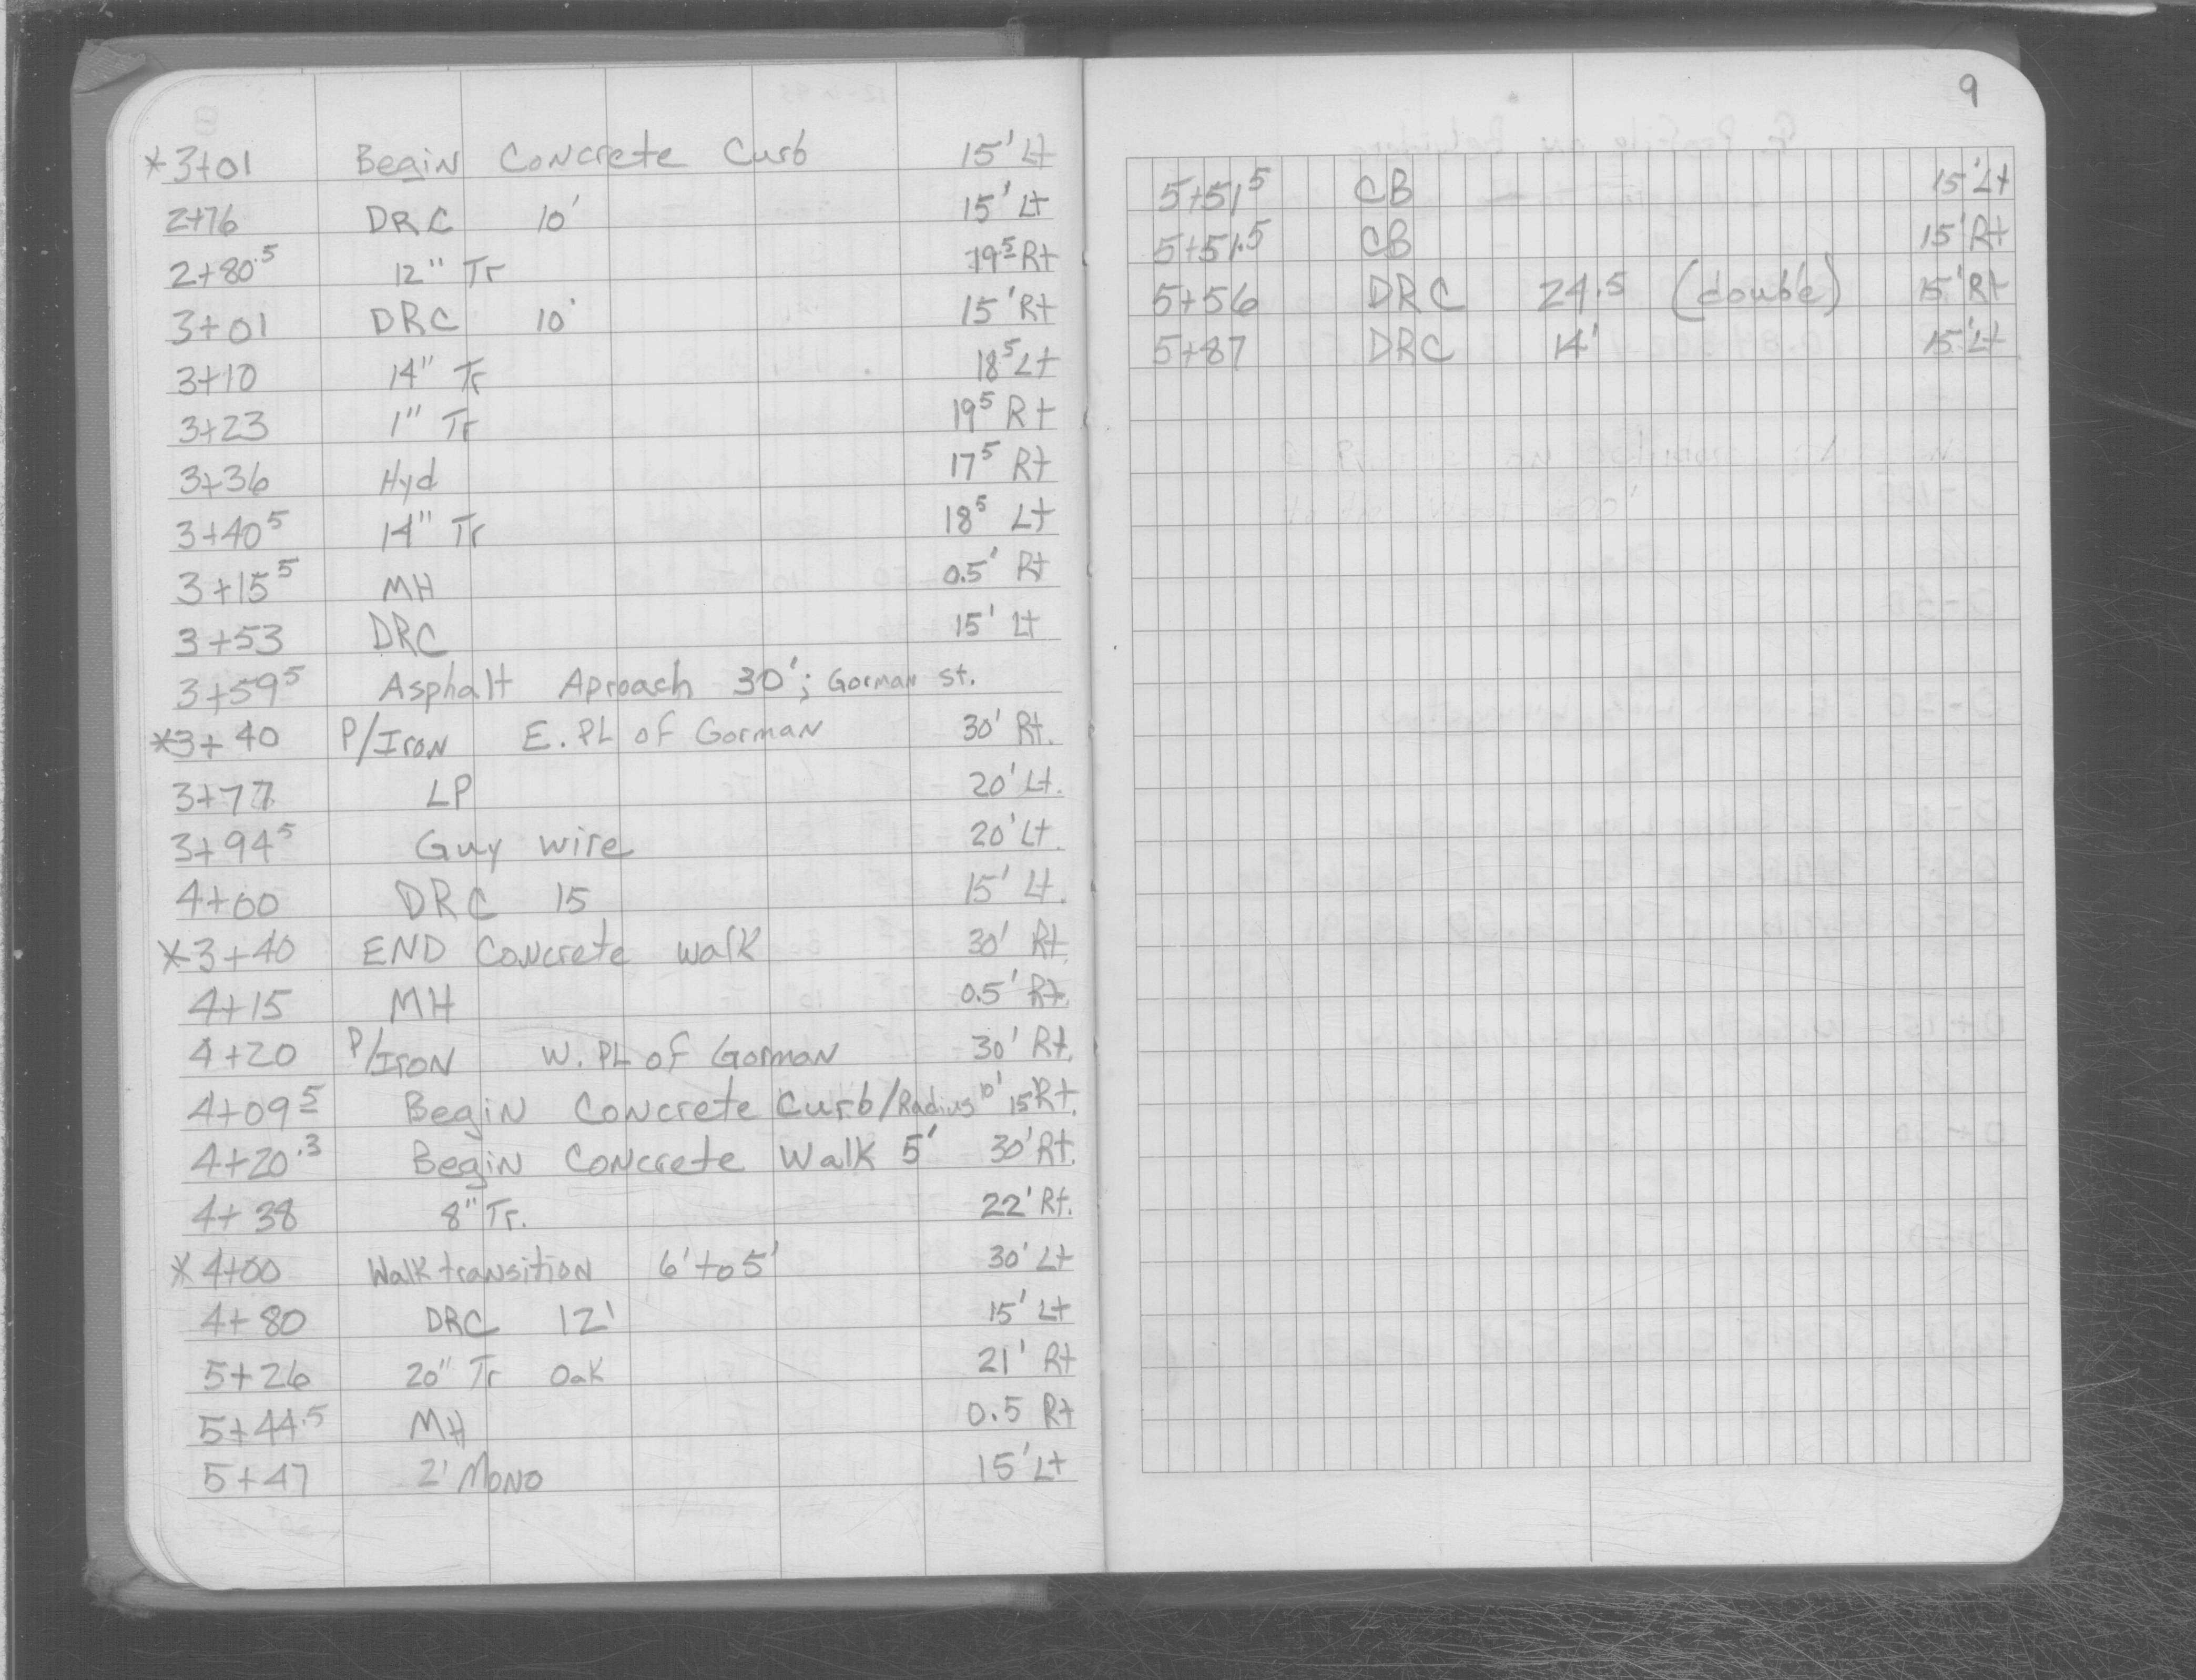 *3+01 Begin Concrete Curb 15' Lt
2+76 DRC 10' 15' Lt
2+80.5 12" Tr 19⁵ Rt
3+01 DRC 10' 15' Rt
3+10 14" Tr 18⁵ Lt
3+23 1" Tr 19⁵ Rt
3+36 Hyd 17⁵ Rt
3+40⁵ 14" Tr 18⁵ Lt
3+15⁵ MH 0.5' Rt
3+53 DRC 15' Lt
3+59⁵ Asphalt Aproach 30'; Gorman st.
*3+40 P/Iron E. PL of Gorman 30' Rt.
3+77 LP 20' Lt.
3+94⁵ Guy wire 20' Lt.
4+00 DRC 15 15' Lt.
*3+40 END Concrete walk 30' Rt.
4+15 MH 0.5' Rt.
4+20 P/Iron W. PL of Gorman 30' Rt.
4+09⁵ Begin Concrete Curb/Radius 10' 15' Rt.
4+20.3 Begin Concrete Walk 5' 30' Rt.
4+38 8" Tr. 22' Rt.
*4+00 Walk transition 6' to 5' 30' Lt
4+80 DRC 12' 15' Lt
5+26 20" Tr Oak 21' Rt
5+44.5 MH 0.5 Rt
5+47 2' Mono 15' Lt
9
5+51⁵ CB 15' Lt
5+51.5 CB 15' Rt
5+56 DRC 24.5 (double) 15' Rt
5+87 DRC 14' 15' Lt